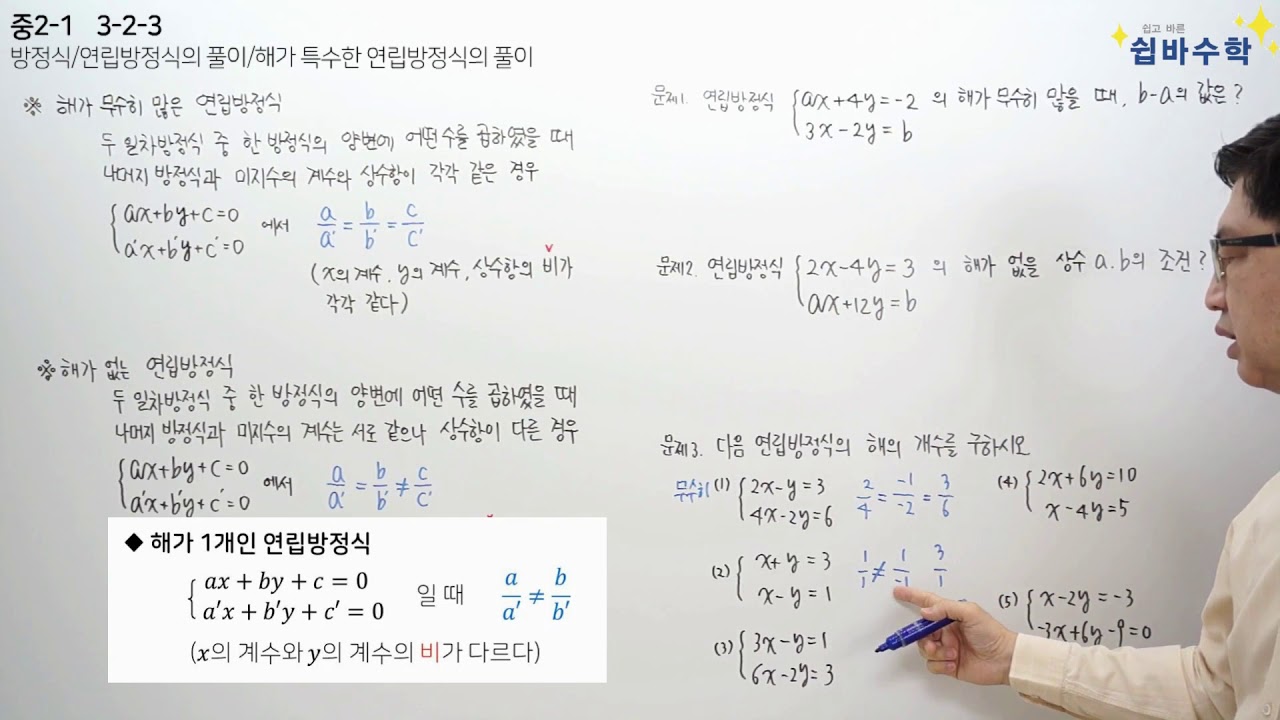 중2-1 3-2-3
방정식/연립방정식의 풀이/해가 특수한 연립방정식의 풀이
쉽고 바른
쉽바수학
※ 해가 무수히 많은 연립방정식
두 일차방정식 중 한 방정식의 양변에 어떤 수를 곱하였을 때
나머지 방정식과 미지수의 계수와 상수항이 각각 같은 경우
{ax+by+c=0
a'x+b'y+c'=0 에서 a/a' = b/b' = c/c'
(x의 계수, y의 계수, 상수항의 비가
각각 같다)
※ 해가 없는 연립방정식
두 일차방정식 중 한 방정식의 양변에 어떤 수를 곱하였을 때
나머지 방정식과 미지수의 계수는 서로 같으나 상수항이 다른 경우
{ax+by+c=0
a'x+b'y+c'=0 에서 a/a' = b/b' ≠ c/c'
◆ 해가 1개인 연립방정식
{ax+by+c=0
a'x+b'y+c'=0 일 때 a/a' ≠ b/b'
(x의 계수와 y의 계수의 비가 다르다)
문제1. 연립방정식 {ax+4y=-2 의 해가 무수히 많을 때, b-a의 값은?
3x-2y=b
문제2. 연립방정식 {2x-4y=3 의 해가 없을 상수 a, b의 조건?
ax+12y=b
문제3. 다음 연립방정식의 해의 개수를 구하시오
무수히 (1) {2x-y=3 2/4 = -1/-2 = 3/6
4x-2y=6
(2) {x+y=3 1/1 ≠ 1/-1 3/1
x-y=1
(3) {3x-y=1
6x-2y=3
(4) {2x+6y=10
x-4y=5
(5) {x-2y=-3
-3x+6y-9=0